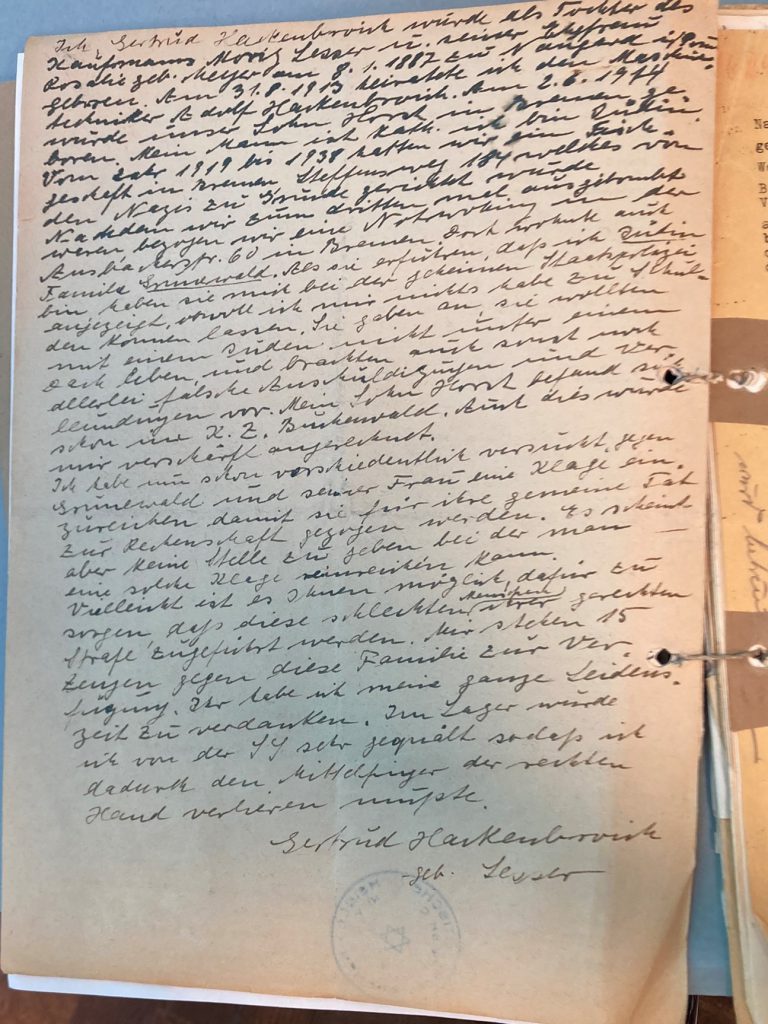 Ich, Gertrud Hackenbroich wurde als Tochter des
Kaufmanns Moritz Lesser u. seiner Ehefrau
Rosalie geb. Meyer am 8.1.1887 zu Naugard i/Pom
geboren. Am 31.8.1913 heiratete ich den Maschie-
techniker Adolf Hackenbroich. Am 2.6.1914
wurde unser Sohn Horst in Bremen ge
boren. Mein Mann ist Kath. ich bin Jüdin.
Vom Jahr 1919 bis 1938 hatten wir ein
geschäft in Bremen Steffensweg 184 welches von
den Nazis zu Grunde gerichtet wurde
Nachdem wir zum dritten mal ausgebombt
waren bezogen wir eine Notwohnung in der
Ansbacherstr. 60 in Bremen Dort wohnte auch
Familie Grunewald. Als sie erfuhren, daß ich Jüdin
bin, haben sie mich bei der geheimen Staatspolizei
angezeigt, obwohl ich mir nichts habe zu Schul-
den können lassen. Sie gaben an sie wollten
mit einem Juden nicht unter einem
Dach leben, und brachten auch sonst noch
allerlei falsche Anschuldigungen und Ver-
leumdungen vor. Mein Sohn Horst befand sich
schon im K.Z. Buchenwald. Auch dies wurde
mir verschärft angerechnet.
Ich habe nun schon verschiedentlich versucht, gegen
Grunewald und seiner Frau eine Klage ein-
zureichen damit sie für ihre gemeine Tat
zur Rechenschaft gezogen werden. Es scheint
aber keine Stelle zu geben bei der man
eine solche Klage einreichen kann.
Vielleicht ist es Ihnen möglich, dafür zu
sorgen, daß diese schlechten Menschen ihrer gerechten
Strafe zugeführt werden. Mir stehen 15
Zeugen gegen diese Familie zur Ver-
fügung. Ihr habe ich meine ganze Leidens-
zeit zu verdanken. Im Lager wurde
ich von der SS sehr gequält sodaß ich
dadurch den Mittelfinger der rechten
Hand verlieren mußte.
Gertrud Hackenbroich
geb. Lesser